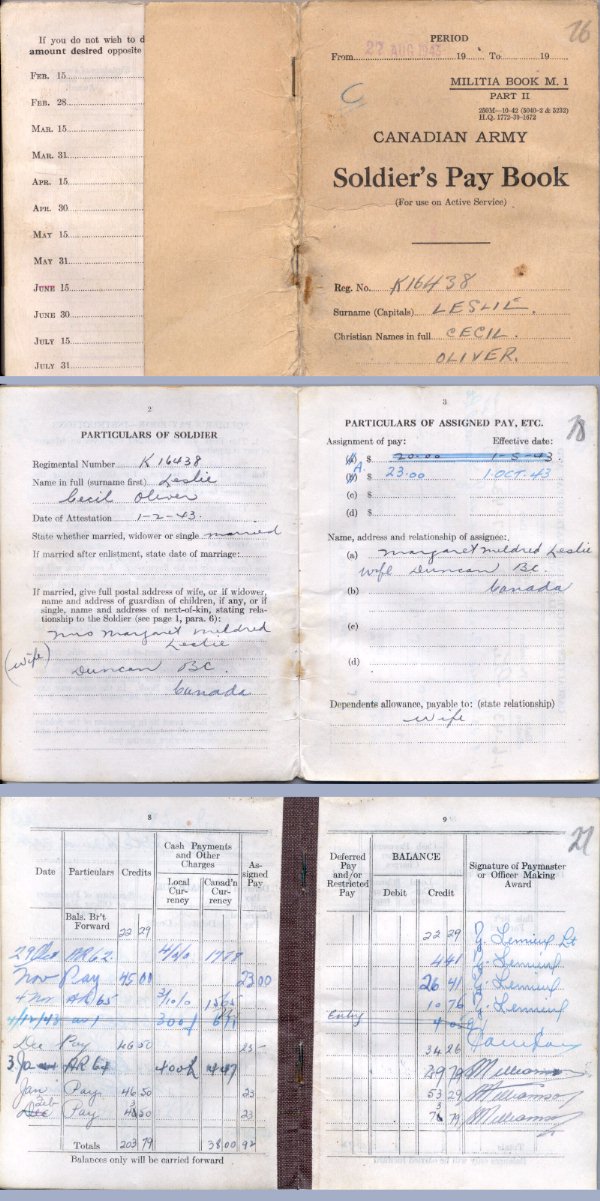 If you do not wish to d
amount desired opposite
FEB. 15
FEB. 28
MAR. 15
MAR. 31
APR. 15
APR. 30
MAY 15
MAY 31
JUNE 15
JUNE 30
JULY 15
JULY 31
76
PERIOD
From 27 AUG 1943 19 To 19
MILITIA BOOK M. 1
PART II
250M—10-42 (5040-2 & 5232)
H.Q. 1772-39-1672
CANADIAN ARMY
Soldier's Pay Book
(For use on Active Service)
Reg. No. K16438
Surname (Capitals) LESLIE.
Christian Names in full CECIL.
OLIVER.
2
PARTICULARS OF SOLDIER
Regimental Number K 16438
Name in full (surname first) Leslie
Cecil Oliver
Date of Attestation 1-2-43.
State whether married, widower or single married
If married after enlistment, state date of marriage:
If married, give full postal address of wife, or if widower,
name and address of guardian of children, if any, or if
single, name and address of next-of-kin, stating rela-
tionship to the Soldier (see page 1, para. 6):
Mrs Margaret Mildred
Leslie
(wife)
Duncan BC.
Canada
3
PARTICULARS OF ASSIGNED PAY, ETC.
Assignment of pay: Effective date:
(a) $ 20.00 1-5-43.
(b) $ 23.00 1 OCT. 43
(c) $
(d) $
Name, address and relationship of assignee:
(a) Margaret Mildred Leslie
wife Duncan BC.
(b) Canada
(c)
(d)
Dependents allowance, payable to: (state relationship)
wife
8
Date Particulars Credits Cash Payments and Other Charges Local Currency Canad'n Currency Assigned Pay
Bals. Br't Forward 22 29
29 Oct AR 62 4/0/0 17 78
Nov Pay 45 00 23 00
4 Nov AR 65 3/10/0 15 65
Dec Pay 46 50 23 -
3 Jan AR 64 4 47
Jan Pay 46 50 23
Feb Pay 43 50 23
Totals 203 79 38 00 92
Balances only will be carried forward
9
27
Deferred Pay and/or Restricted Pay BALANCE Debit Credit Signature of Paymaster or Officer Making Award
22 29 Lemieux Lt
4 41 Lemieux
26 41 Lemieux
10 76 Lemieux
Entry
34 26
29 79 Williamson
53 29 Williamson
79 Williamson